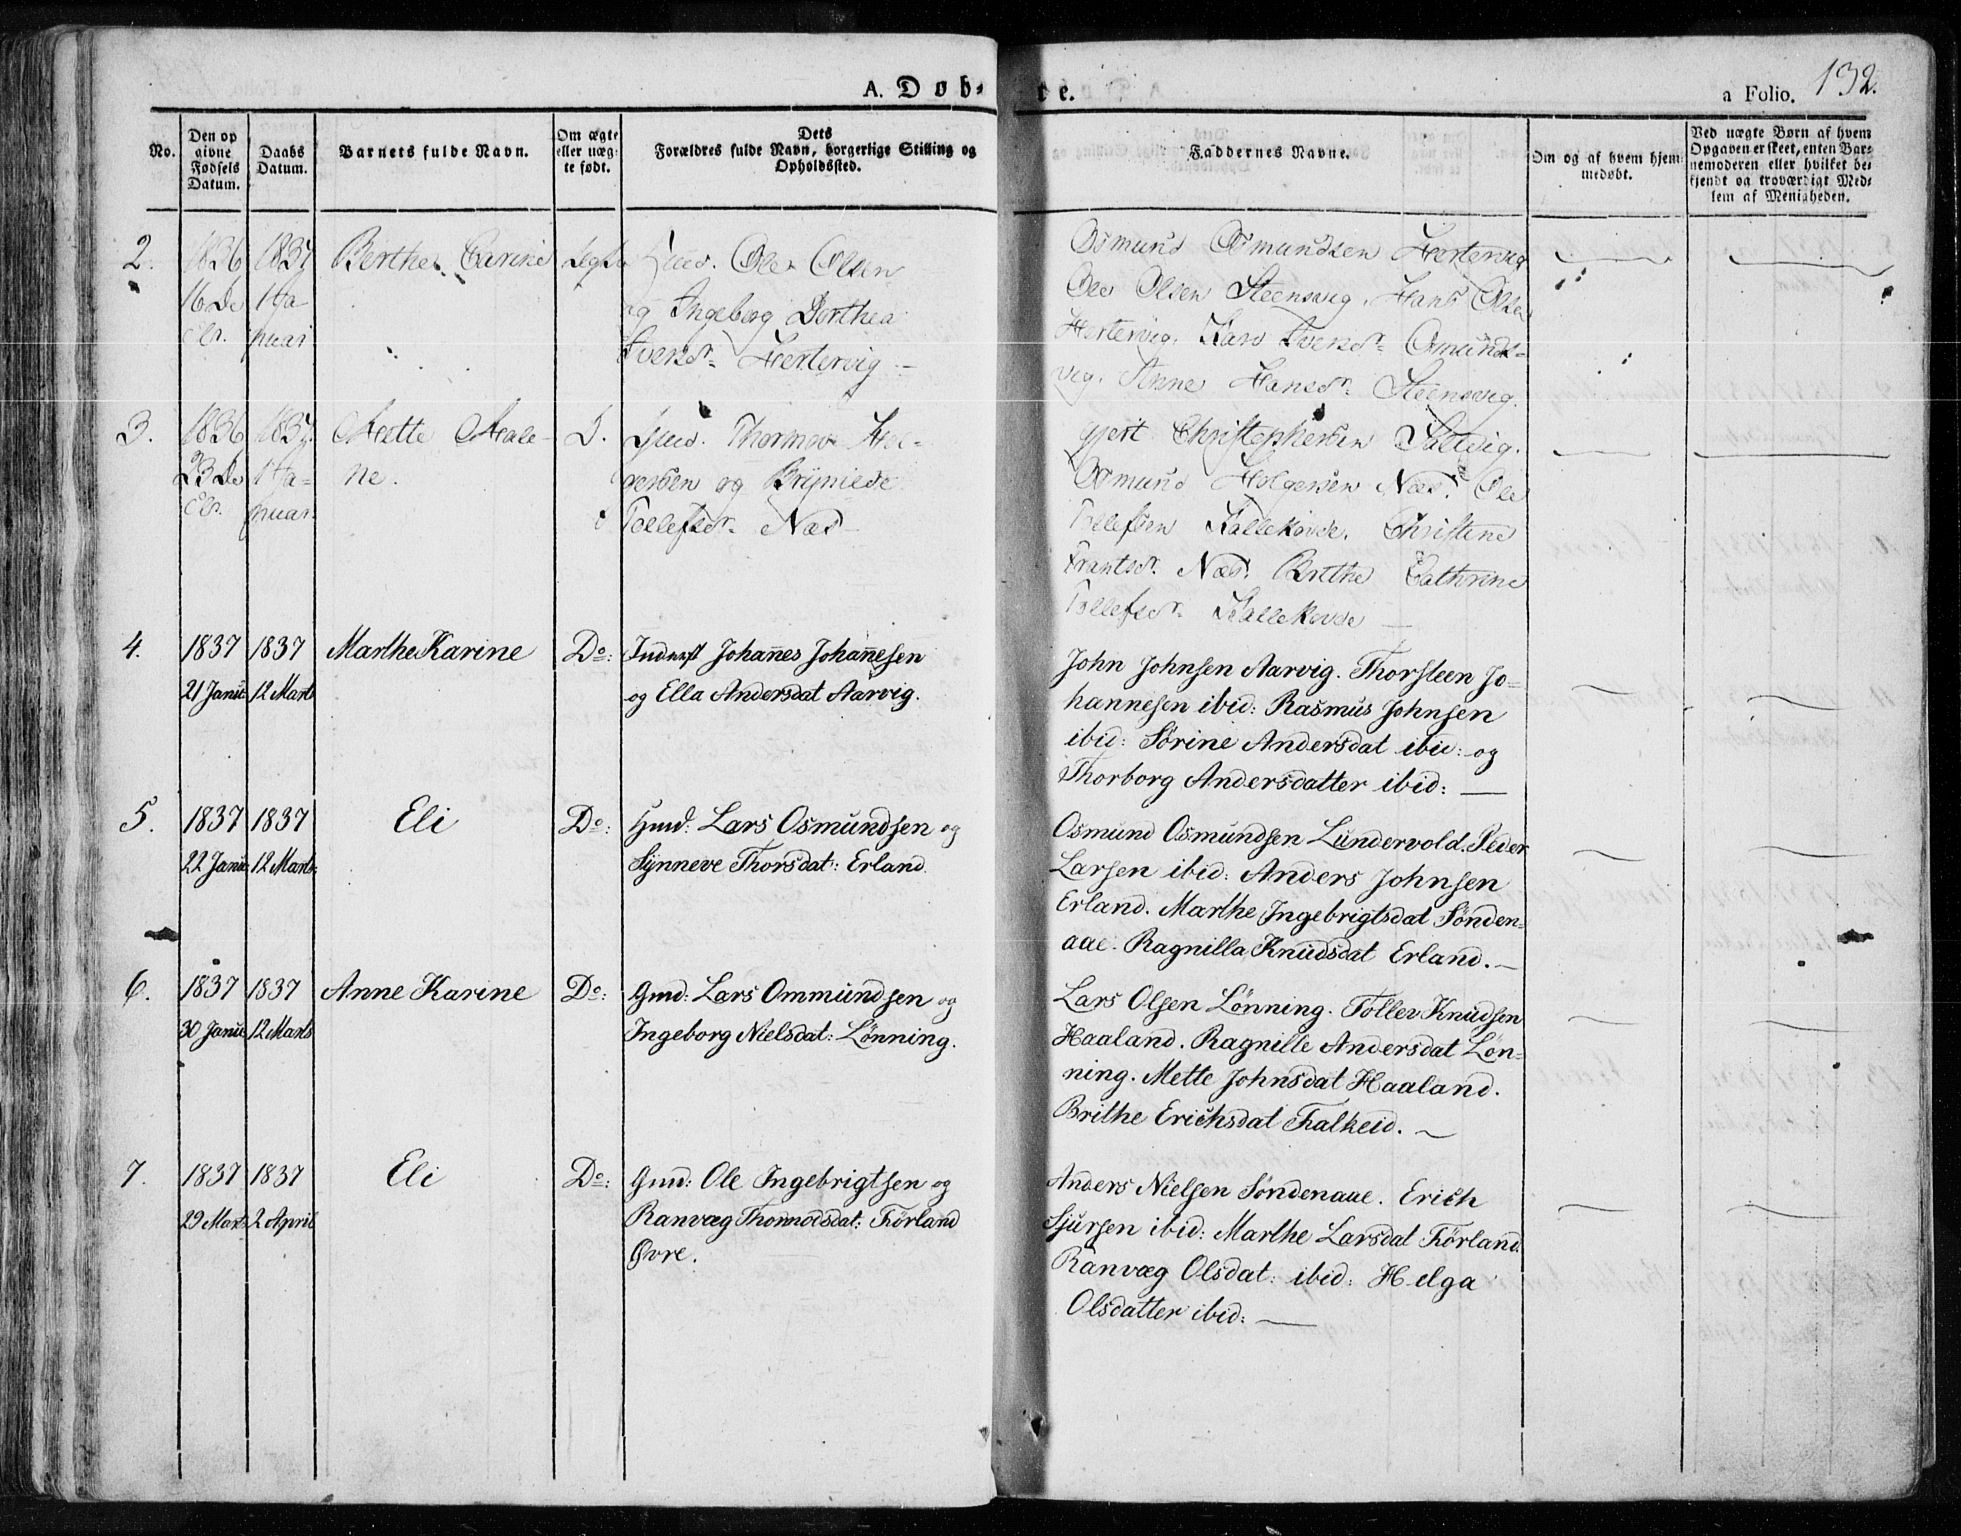 A. Døb- te.
a Folio. 132.
No.
Den op
givne
Fødsels
Datum.
Daabs
Datum.
Barnets fulde Navn.
Om ægte
eller uæg-
te født.
Dets
Forældres fulde Navn, borgerlige Stilling og
Opholdssted.
Faddernes Navne.
Om og af hvem hjem-
medøbt.
Ved uægte Børn af hvem
Opgaven er skeet, enten Bar-
nemoderen eller hvilket be-
kjendt og troværdigt Med-
lem af Menigheden.
2.
1836
16 De
cbr.
1837
1 Ja-
nuar
Berthe Carine
Ole Olsen
og Ingeborg Dorthea
Iversdr. Hertervig
Osmund Osmundsen Hertervig
Ole Olsen Steensvig. Hans Olsen
Hertervig. Kari Iversdr. Osmunds-
vig. Anne Hansdr. Steensvig.
3.
1836
23 De
cbr.
1837
1 Ja-
nuar.
Mette Male-
ne.
D.
Thormod Hol-
gersen og Brynilde
Tollefsdr. Næs
Gjert Christophersen Saltvig.
Osmund Holgersen Næs. Ole
Tollefsen Kallekodde. Christine
Frantsdr. Næs. Brithe Cathrine
Tollefsdr. Kallekodde
4.
1837
21 Janu:
1837
12 Marts
Marthe Karine
Do:
Inderst Johannes Johannesen
og Ella Andersdat Aarvig.
John Johnsen Aarvig. Thorsteen Jo-
hannesen ibid: Rasmus Johnsen
ibid: Sørine Andersdat ibid: og
Thorborg Andersdatter ibid:
5.
1837
22 Janu:
1837
12 Marts
Eli
Do:
Hmd: Lars Osmundsen og
Synneve Thorsdat: Erland.
Osmund Osmundsen Lundervold. Peder
Larsen ibid: Anders Johnsen
Erland. Marthe Ingebrigtsdat Sønden-
aae. Ragnilla Knudsdat Erland.
6.
1837
30 Janu
1837
12 Marts
Anne Karine
Do:
Gmd: Lars Ommundsen og
Ingeborg Nielsdat: Lønning.
Lars Olsen Lønning. Tollev Knudsen
Haaland. Ragnille Andersdat Løn-
ning. Mette Johnsdat Haaland.
Brithe Erichsdat Falkeid.
7.
1837
29 Mart
1837
2 April
Eli
Do:
Gmd: Ole Ingebrigtsen og
Ranvæg Thormodsdat: Førland
Øvre.
Anders Nielsen Søndenaae. Erich
Sjursen ibid: Marthe Larsdat Førland.
Ranvæg Olsdat: ibid: Helga
Olsdatter ibid: